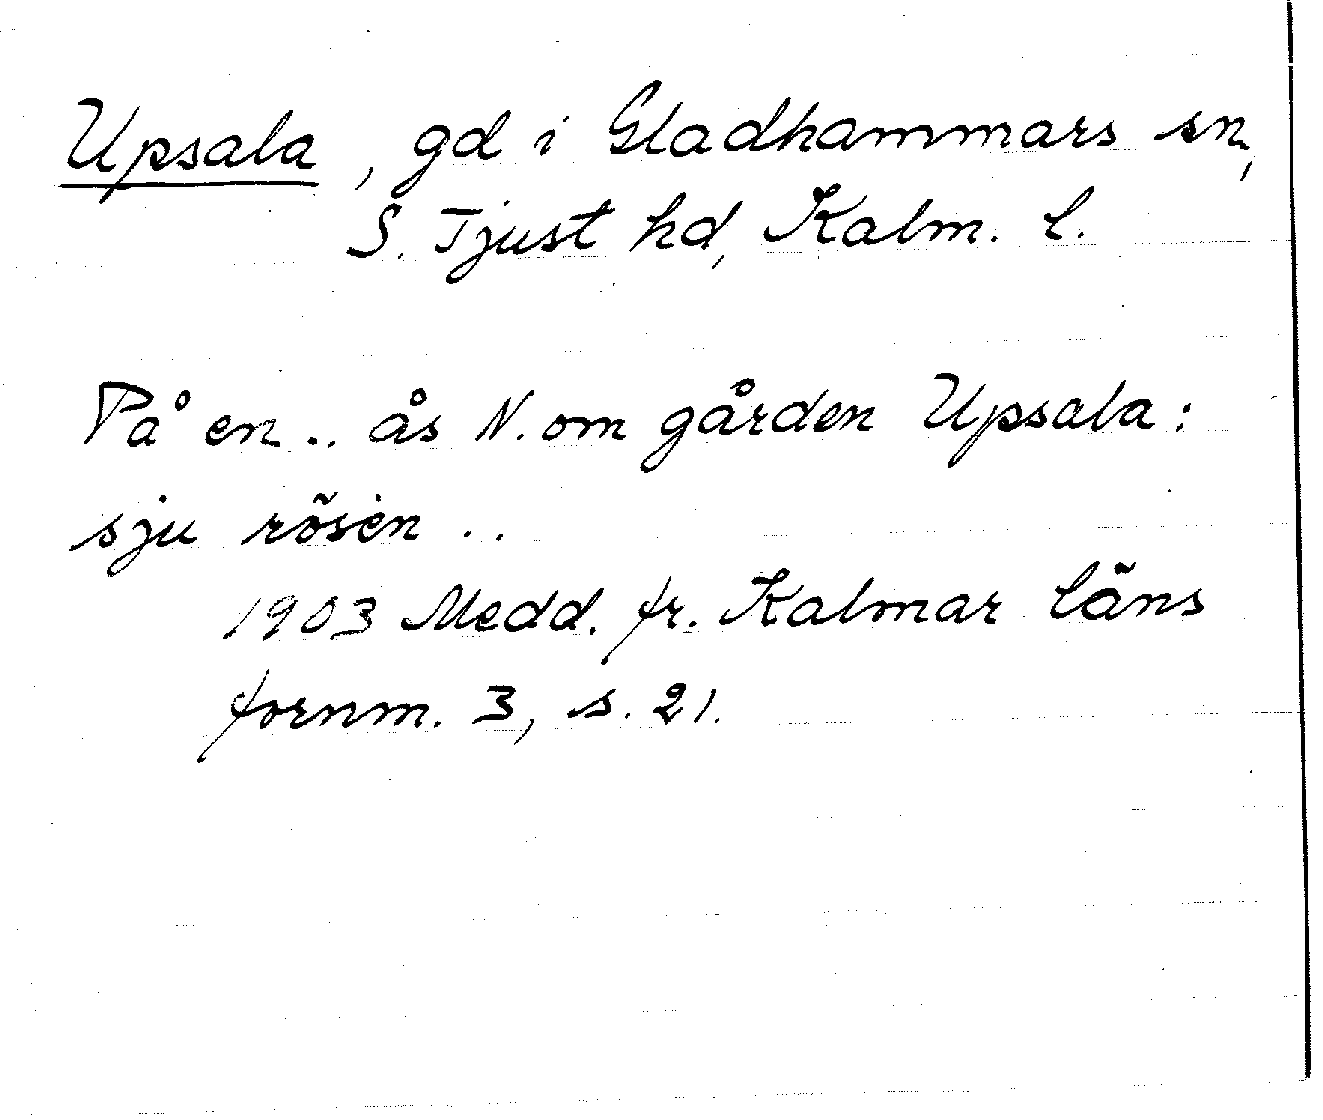 Upsala, gd i Gladhammars sn,
S. Tjust hd, Kalm. l.
På en .. ås N. om gården Upsala:
sju rösen ..
1903 Medd. fr. Kalmar läns
fornm. 3, s. 21.